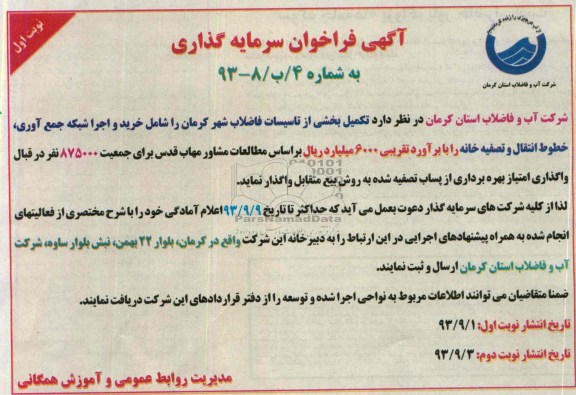 نوبت اول
شرکت آب و فاضلاب استان کرمان
آگهی فراخوان سرمایه گذاری
به شماره ۴/ب/۸-۹۳
شرکت آب و فاضلاب استان کرمان در نظر دارد تکمیل بخشی از تاسیسات فاضلاب شهر کرمان را شامل خرید و اجرا شبکه جمع آوری،
خطوط انتقال و تصفیه خانه را با برآورد تقریبی ۶۰۰۰ میلیارد ریال براساس مطالعات مشاور مهاب قدس برای جمعیت ۸۷۵۰۰۰ نفر در قبال
واگذاری امتیاز بهره برداری از پساب تصفیه شده به روش بیع متقابل واگذار نماید.
لذا از کلیه شرکت های سرمایه گذار دعوت بعمل می آید که حداکثر تا تاریخ ۹۳/۹/۹ اعلام آمادگی خود را با شرح مختصری از فعالیتهای
انجام شده به همراه پیشنهادهای اجرایی در این ارتباط را به دبیرخانه این شرکت واقع در کرمان، بلوار ۲۲ بهمن، نبش بلوار ساوه، شرکت
آب و فاضلاب استان کرمان ارسال و ثبت نمایند.
ضمنا متقاضیان می توانند اطلاعات مربوط به نواحی اجرا شده و توسعه را از دفتر قراردادهای این شرکت دریافت نمایند.
تاریخ انتشار نوبت اول: ۹۳/۹/۱
تاریخ انتشار نوبت دوم: ۹۳/۹/۳
مدیریت روابط عمومی و آموزش همگانی
ParsNamadData